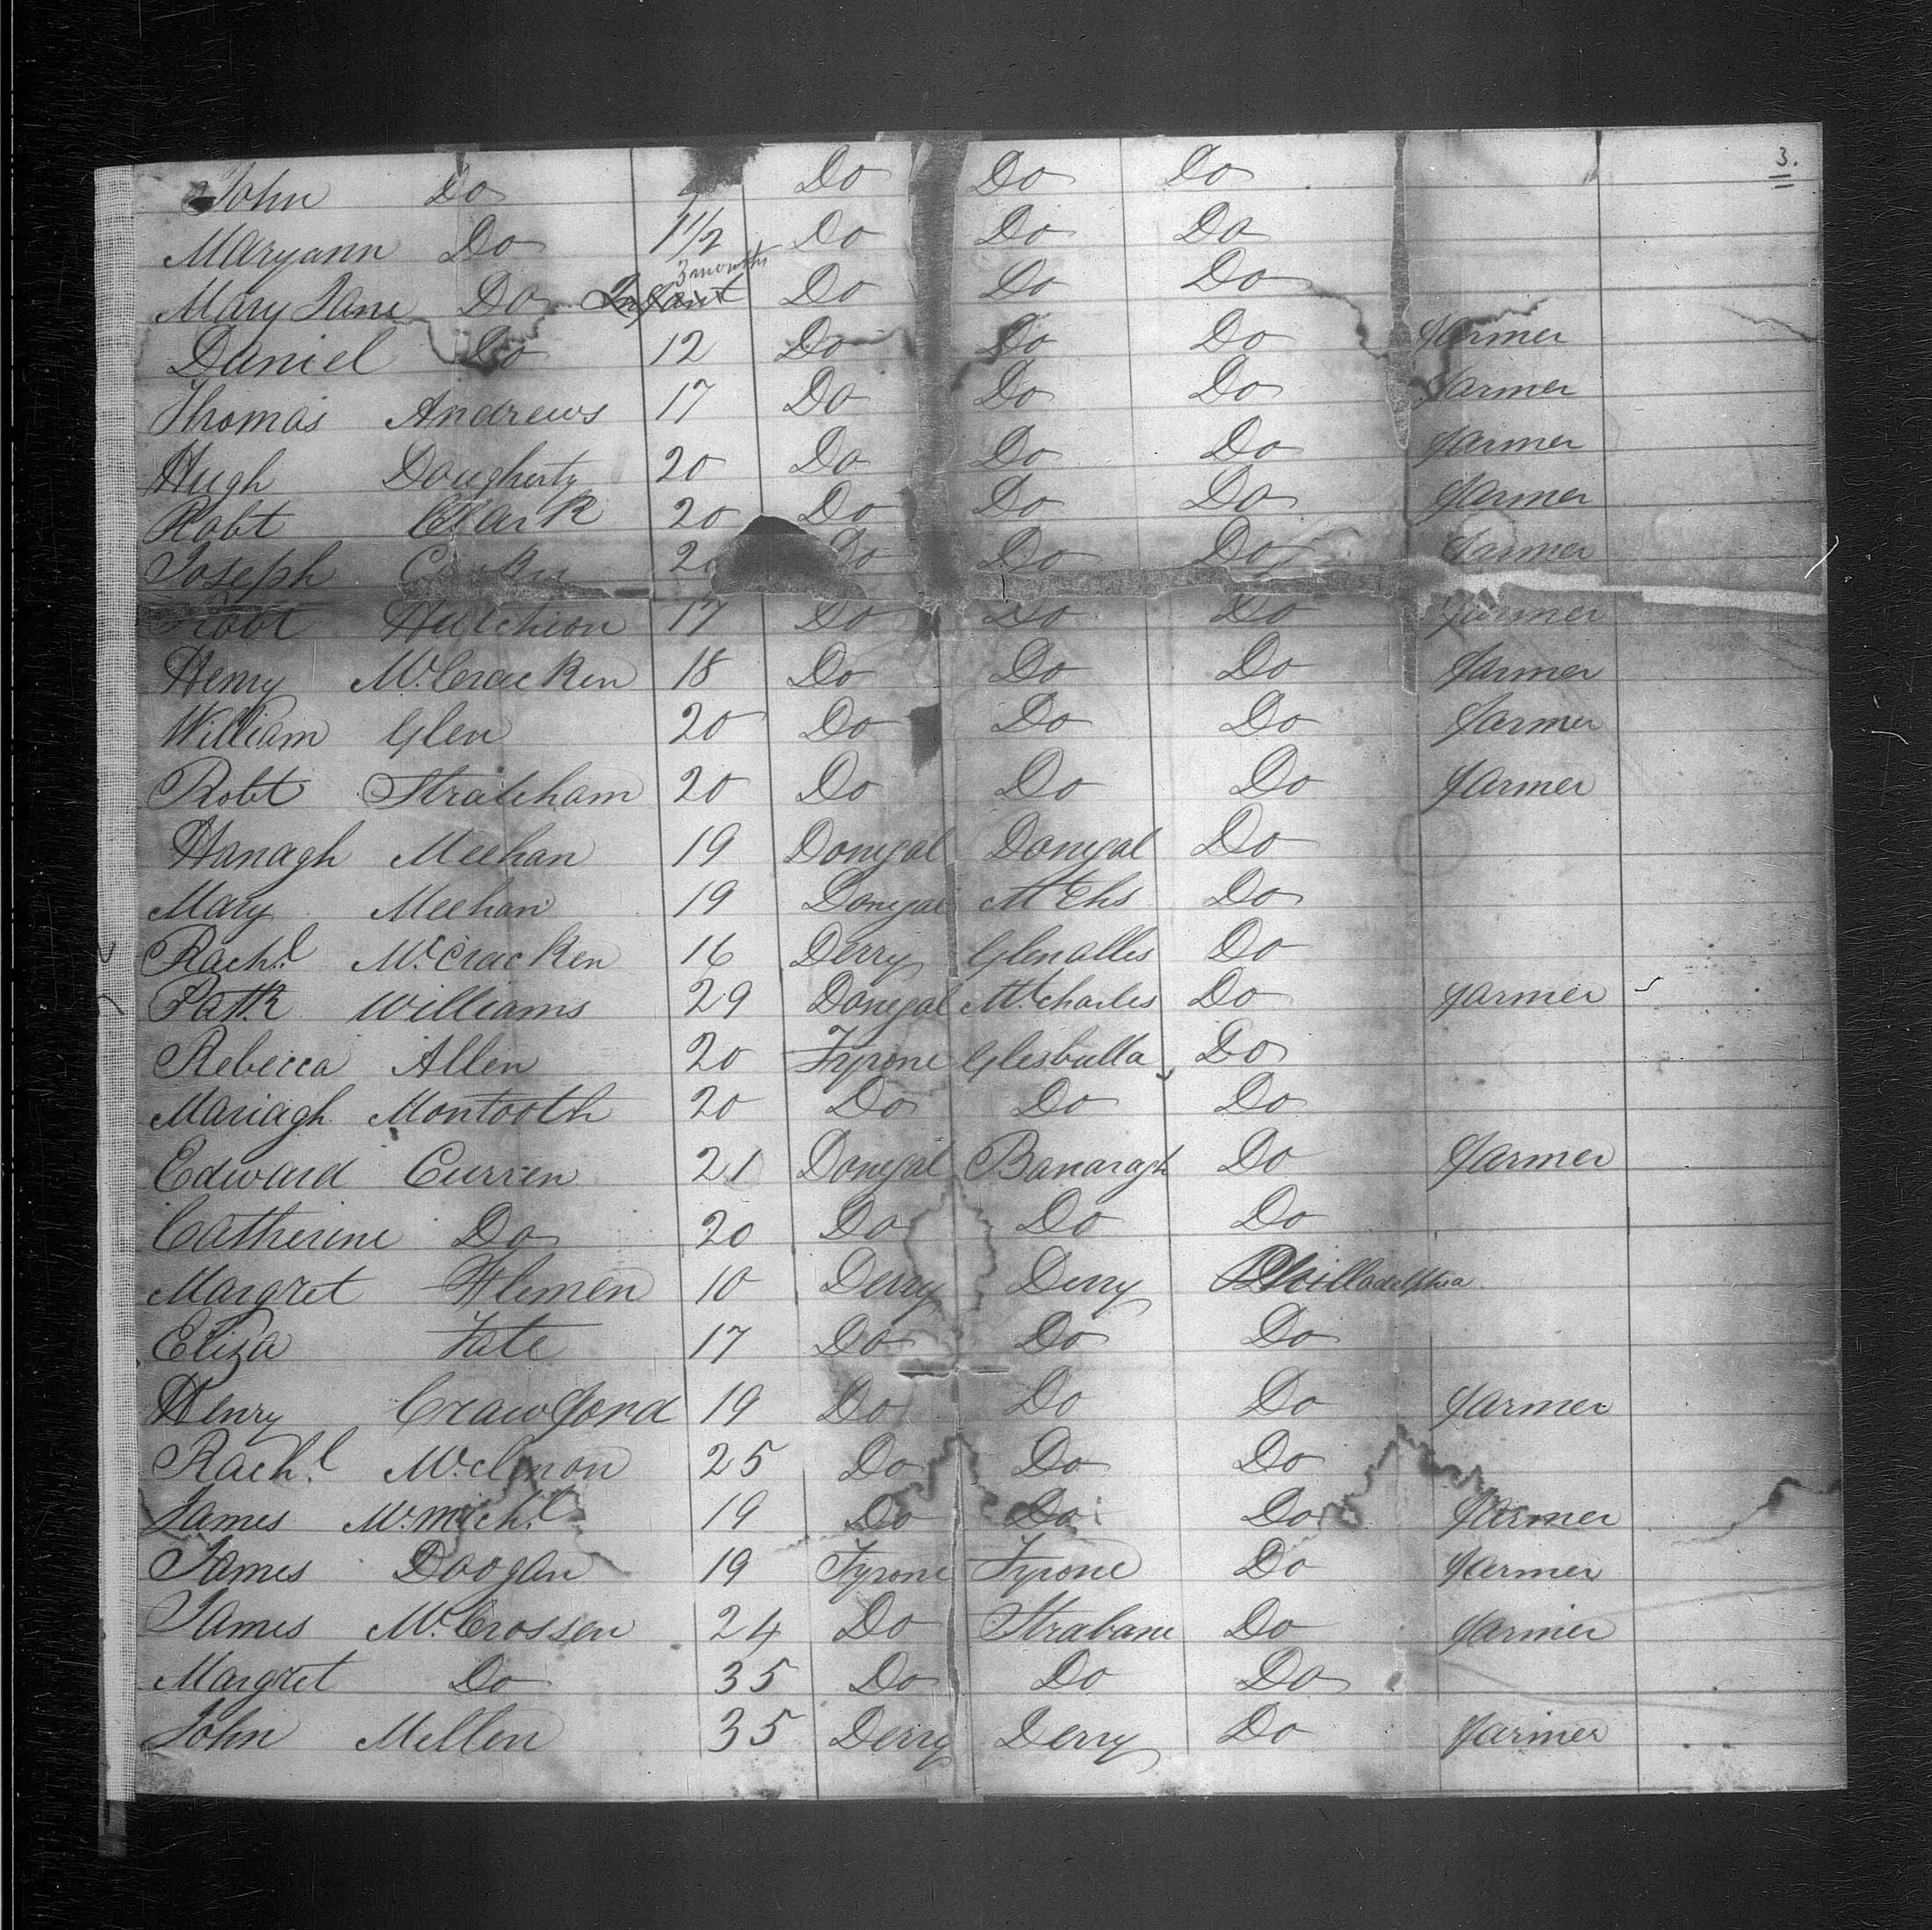 3.
John Do Do Do Do
Maryann Do 1 1/2 Do Do Do
3 months
Mary Jane Do Infant Do Do Do
Daniel Do 12 Do Do Do farmer
Thomas Andrews 17 Do Do Do farmer
Hugh Dougherty 20 Do Do Do farmer
Robt Clark 20 Do Do Do farmer
Joseph Do Do Do farmer
Robt Hutchion 17 Do Do Do farmer
Henry McCracken 18 Do Do Do farmer
William Glen 20 Do Do Do farmer
Robt Stratcham 20 Do Do Do farmer
Hanagh Meehan 19 Donegal Donegal Do
Mary Meehan 19 Donegal Mt Chs Do
Rachl McCracken 16 Derry Glenalles Do
Patk Williams 29 Donegal Mt charles Do farmer
Rebecca Allen 20 Tyrone Glesbulla Do
Mariagh Montooth 20 Do Do Do
Edward Curren 21 Donegal Banaragh Do farmer
Catherine Do 20 Do Do Do
Margret Flemen 10 Derry Derry Philladelphia
Eliza Tate 17 Do Do Do
Henry Crawford 19 Do Do Do farmer
Rachl McClenon 25 Do Do Do
James McMichl 19 Do Do Do farmer
James Doogan 19 Tyrone Tyrone Do farmer
James McCrossen 24 Do Strabane Do farmer
Margret Do 35 Do Do Do
John Mellen 35 Derry Derry Do farmer